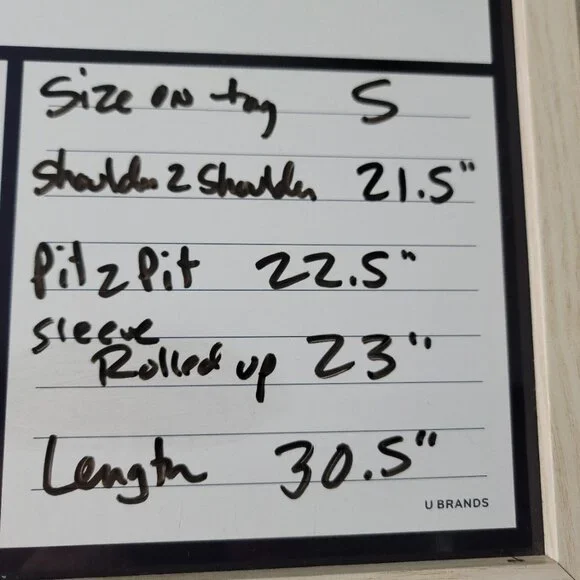 Size on tag S
Shoulder 2 Shoulder 21.5"
Pit 2 Pit 22.5"
Sleeve
Rolled up 23"
Length 30.5"
U BRANDS